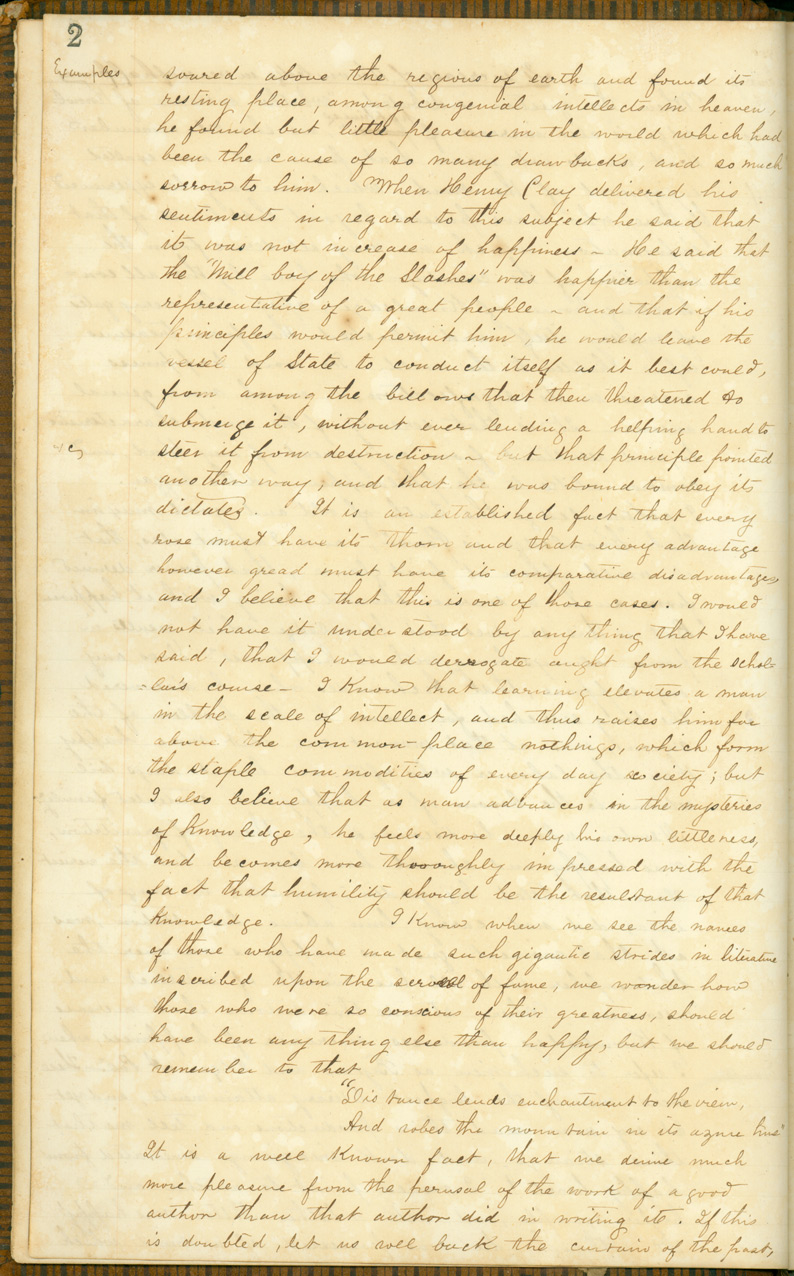 2
Examples
soared above the regions of earth and found its
resting place, among congenial intellects in heaven,
he found but little pleasure in the world which had
been the cause of so many drawbacks, and so much
sorrow to him. When Henry Clay delivered his
sentiments in regard to this subject he said that
it was not increase of happiness - He said that
the "Mill boy of the Slashes" was happier than the
representative of a great people - and that if his
principles would permit him, he would leave the
vessel of State to conduct itself as it best could,
from among the billows that then threatened to
submerge it, without ever lending a helping hand to
steer it from destruction - but that principle pointed
another way, and that he was bound to obey its
dictates. It is an established fact that every
rose must have its thorn and that every advantage
however gread must have its comparative disadvantages,
and I believe that this is one of those cases. I would
not have it understood by any thing that I have
said, that I would derrogate aught from the schol=
=lar's course - I Know that learning elevates a man
in the scale of intellect, and thus raises him far
above the common-place nothings, which form
the staple commodities of every day society; but
I also believe that as man advances in the mysteries
of Knowledge, he feels more deeply his own littleness,
and becomes more thoroughly impressed with the
fact that humility should be the resulstant of that
Knowledge. I Know when we see the names
of those who have made such gigantic strides in literature
inscribed upon the scroll of fame, we wander how
those who were so conscious of their greatness, should
have been any thing else than happy, but we should
remember to that
"Distance lends enchantment to the view,
And robes the mountain in its azure hue"
It is a well Known fact, that we derive much
more pleasure from the perusal of the work of a good
author than that author did in writing it. If this
is doubted, let us roll back the curtain of the past,